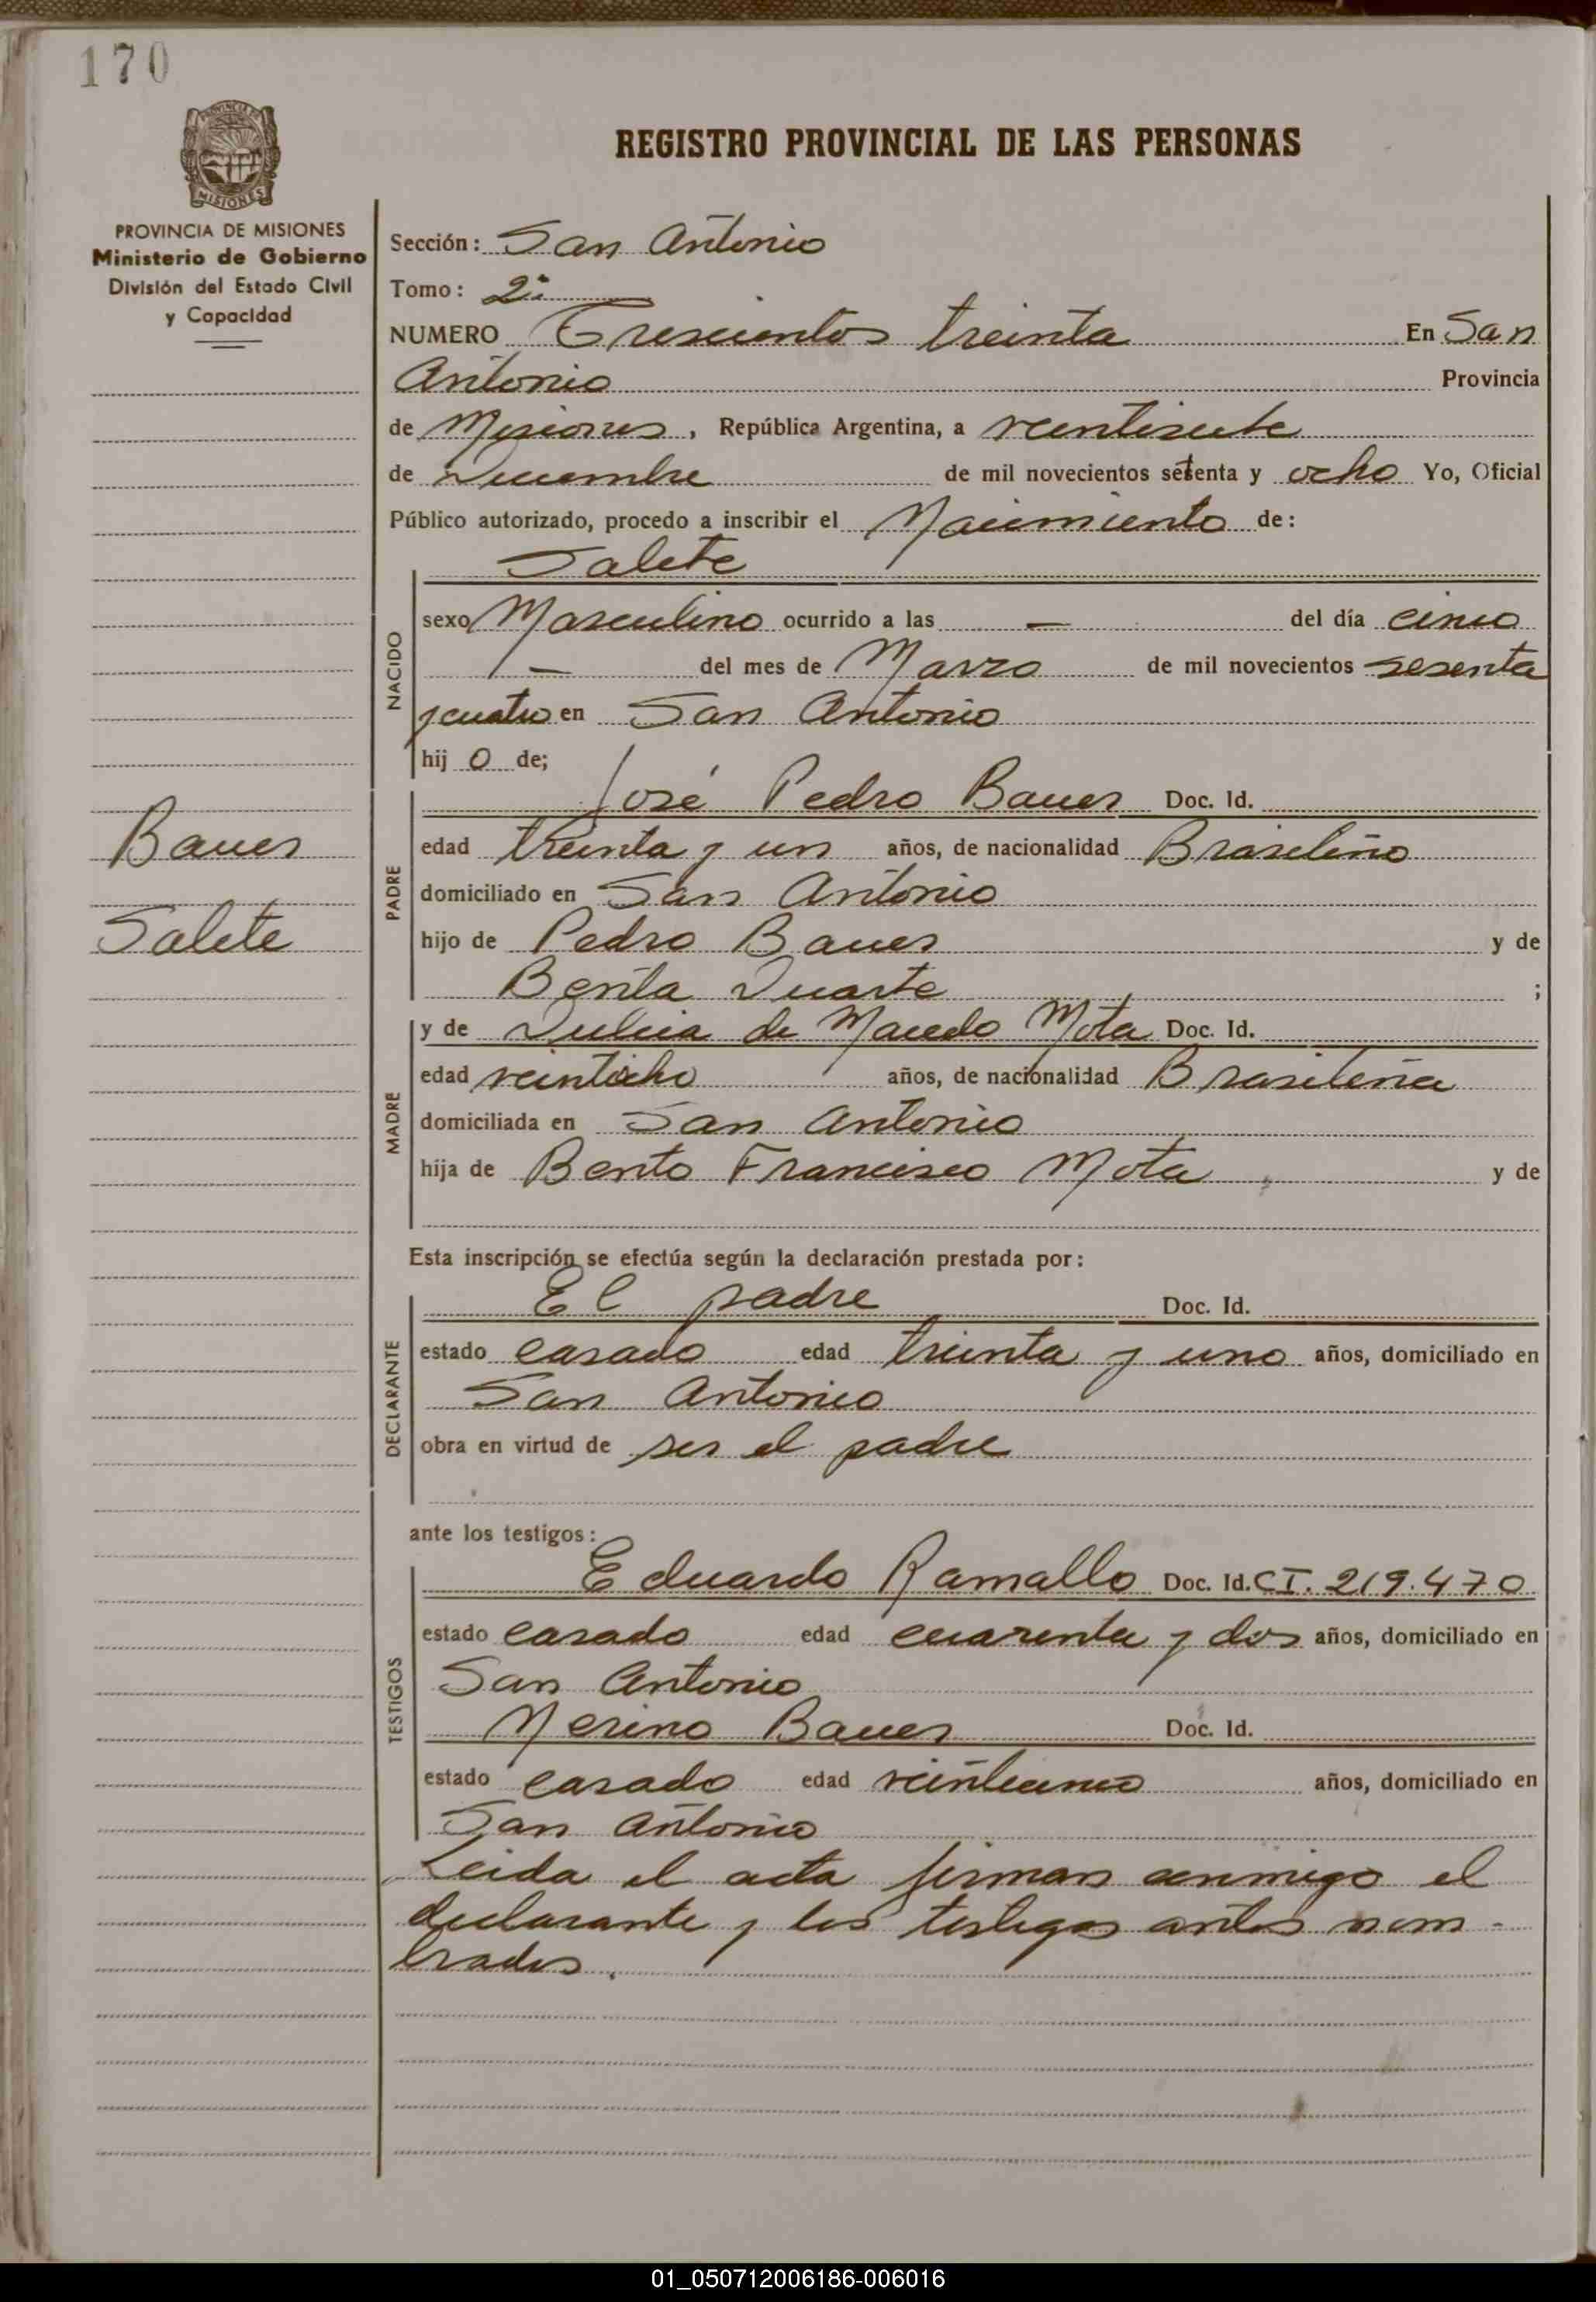 170
PROVINCIA DE
MISIONES
REGISTRO PROVINCIAL DE LAS PERSONAS
PROVINCIA DE MISIONES
Ministerio de Gobierno
División del Estado Civil
y Capacidad
Sección: San Antonio
Tomo: 2º
NUMERO Trescientos treinta En San
Antonio Provincia
de Misiones, República Argentina, a veintisiete
de Diciembre de mil novecientos setenta y ocho Yo, Oficial
Público autorizado, procedo a inscribir el Nacimiento de:
Salete
NACIDO
sexo Masculino ocurrido a las — del día cinco
— del mes de Marzo de mil novecientos sesenta
y cuatro en San Antonio
hij o de;
PADRE
José Pedro Bauer Doc. Id.
edad treinta y un años, de nacionalidad Brasileño
domiciliado en San Antonio
hijo de Pedro Bauer y de
Benta Duarte ;
MADRE
y de Dulcia de Macedo Mota Doc. Id.
edad veintiocho años, de nacionalidad Brasileña
domiciliada en San Antonio
hija de Bento Francisco Mota y de
Esta inscripción se efectúa según la declaración prestada por:
DECLARANTE
El padre Doc. Id.
estado casado edad treinta y uno años, domiciliado en
San Antonio
obra en virtud de ser el padre
ante los testigos:
TESTIGOS
Eduardo Ramallo Doc. Id. CI. 219.470
estado casado edad cuarenta y dos años, domiciliado en
San Antonio
Nerino Bauer Doc. Id.
estado casado edad veinticinco años, domiciliado en
San Antonio
Leida el acta firman conmigo el
declarante y los testigos antes nom-
brados.
Bauer
Salete
01_050712006186-006016